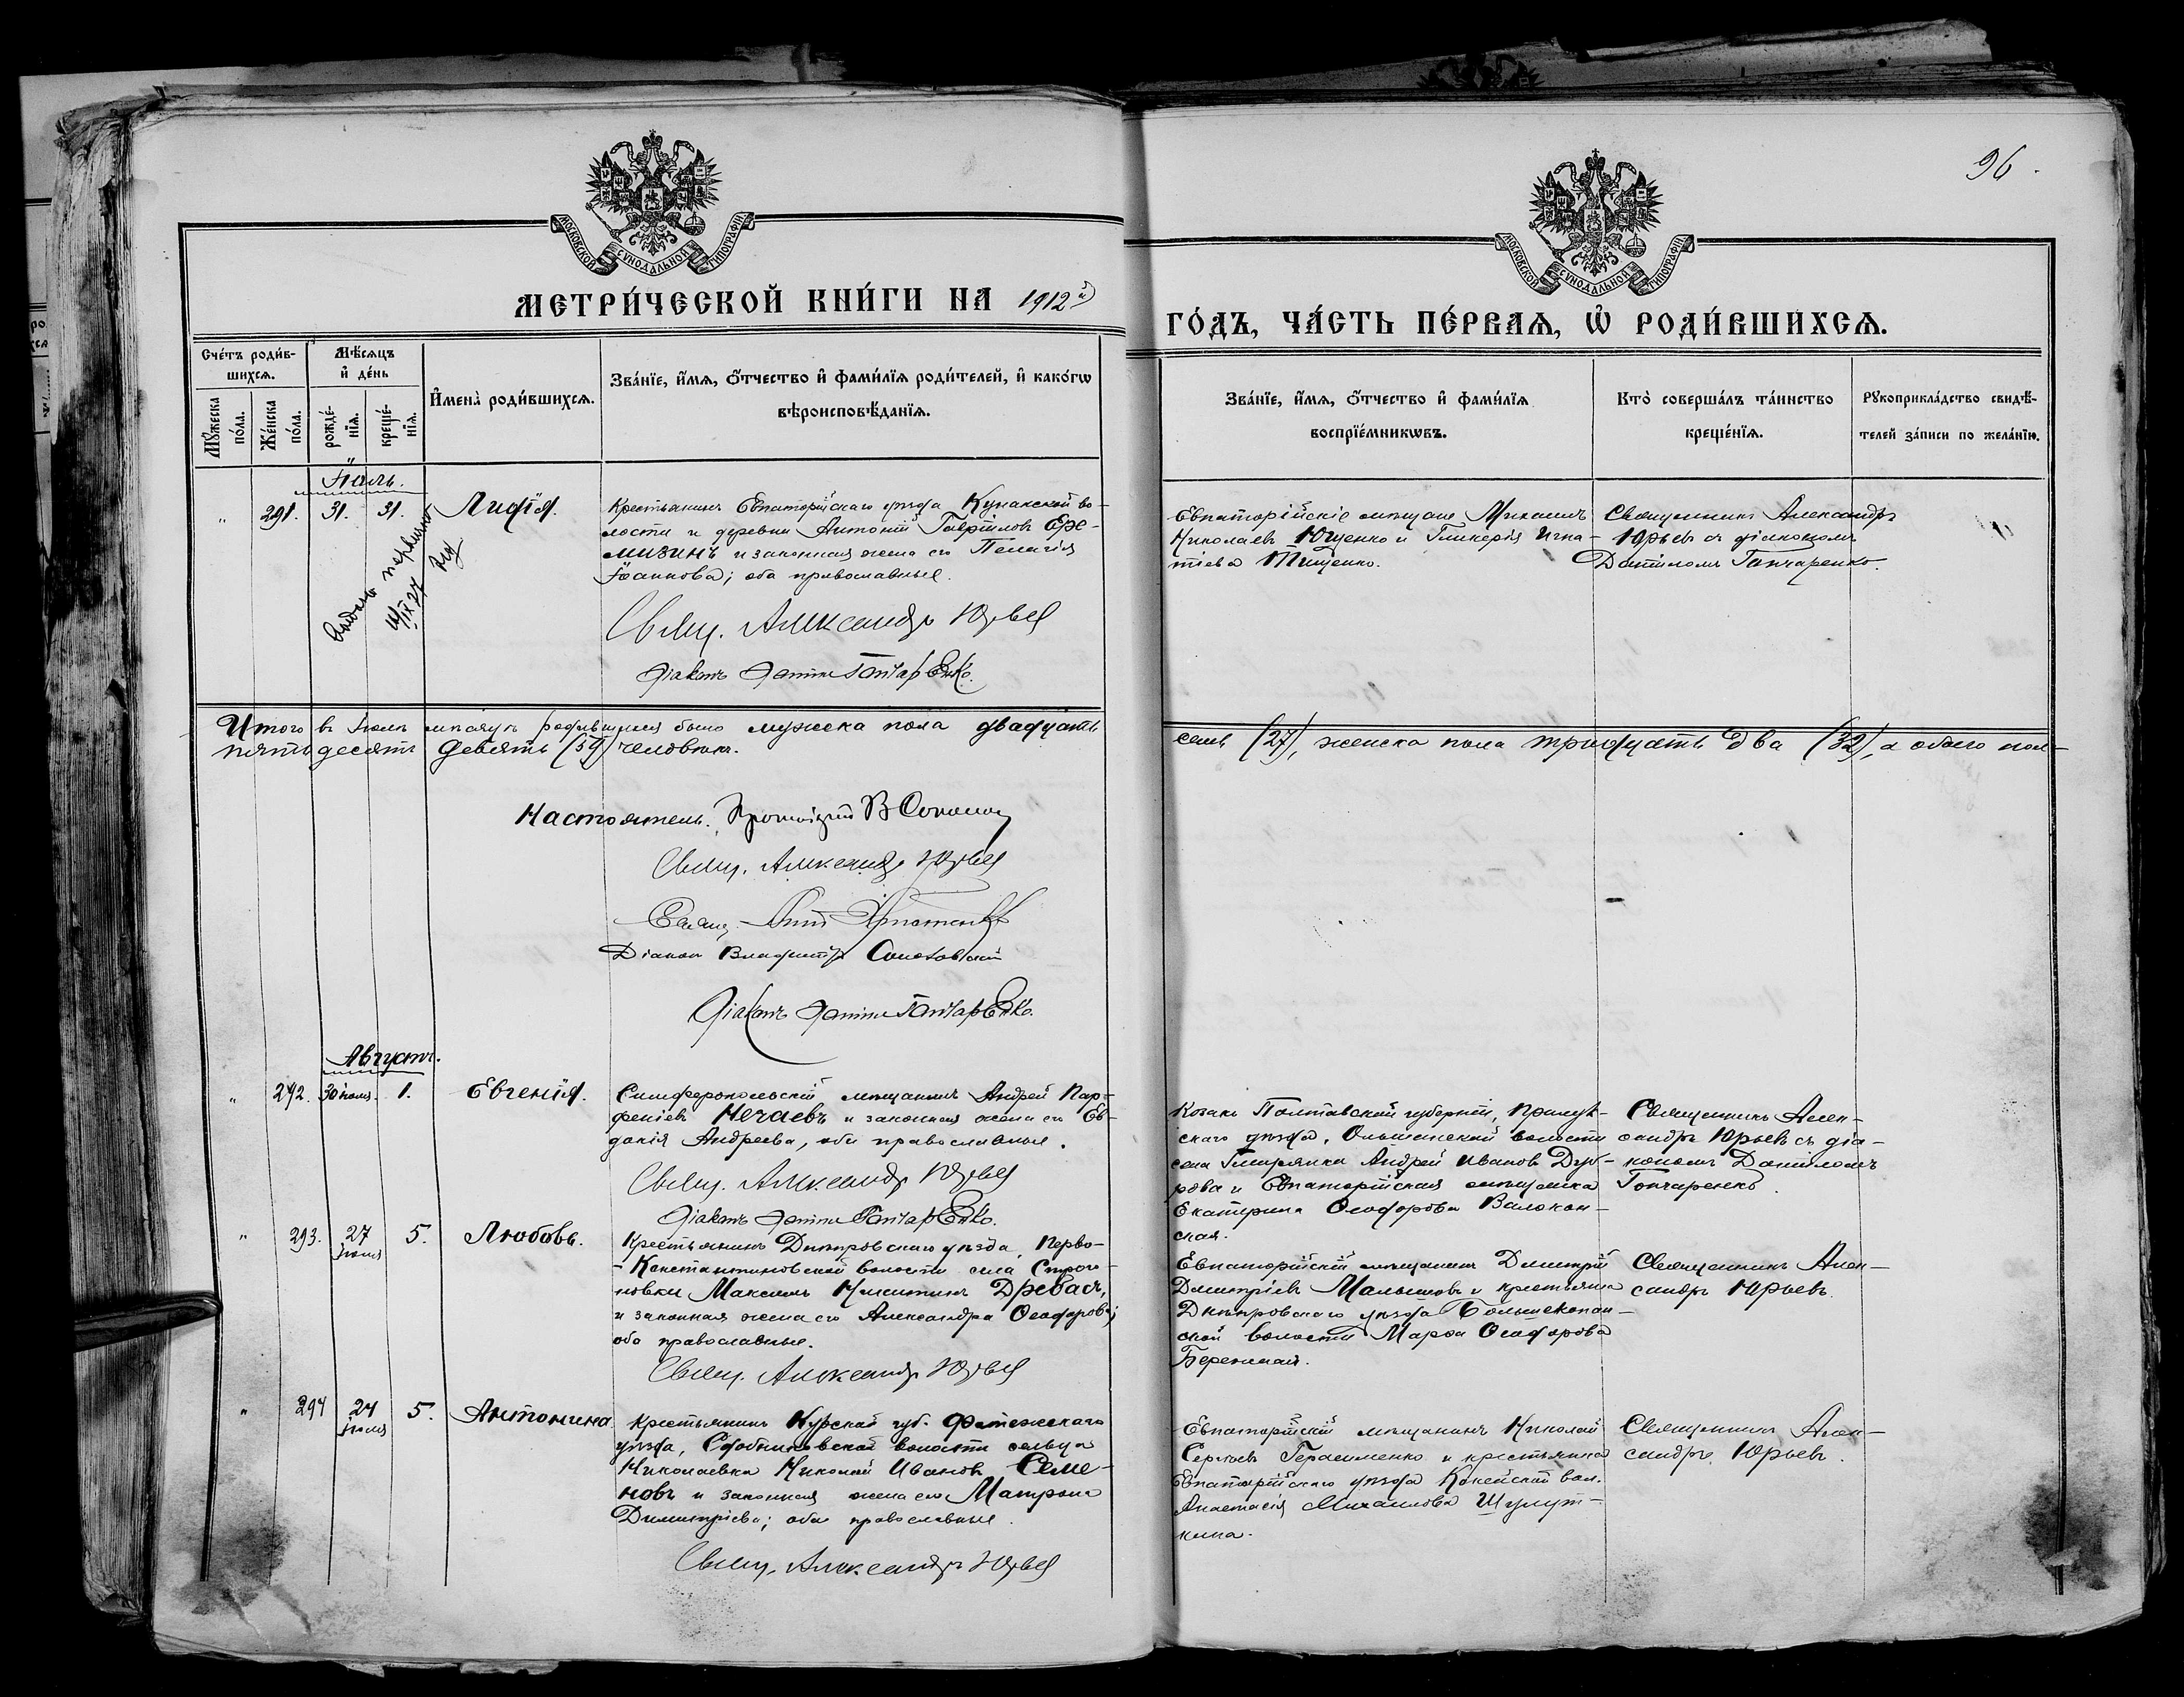 96.
МОСКОВСКОЙ СѴНОДАЛЬНОЙ ТИПОГРАФІИ
МОСКОВСКОЙ СѴНОДАЛЬНОЙ ТИПОГРАФІИ
МЕТРИ́ЧЕСКОЙ КНИ́ГИ НА 1912й
ГО́ДЪ, ЧА́СТЬ ПЕ́РВАЯ, Ѡ РОДИ́ВШИХСЯ.
Сче́тъ роди́в-
шихся.
Мꙋ́жеска по́ла.
Же́нска по́ла.
Мѣ́сяцъ
и де́нь
рожде́-
нїя.
креще́-
нїя.
Имена̀ роди́вшихся.
Зва́нїе, и́мя, о́тчество и фами́лїя роди́телей, и како́гѡ
вѣроисповѣ́данїя.
Зва́нїе, и́мя, о́тчество и фами́лїя
воспрїе́мникѡвъ.
Кто̀ соверша́лъ та́инство
креще́нїя.
Рꙋкоприкла́дство свидѣ́-
телей за́писи по жела́нїю.
Іюль.
" 291. 31. 31. Лидія.
Крестьянинъ Евпаторійскаго уѣзда Кунакской во-
лости и деревни Антоній Гавріиловъ Ере-
мизинъ и законная жена его Пелагія
Іоаннова; оба православные.
Свящ. Александръ Юрьевъ
Діаконъ Даніилъ Гончаренко.
Евпаторійскіе мѣщане Михаилъ
Николаевъ Ющенко и Гликерія Игна-
тіева Тищенко.
Священникъ Александръ
Юрьевъ съ діакономъ
Даніиломъ Гончаренко.
Итого въ Іюлѣ мѣсяцѣ родившихся было мужеска пола двадцать
семь (27), женска пола тридцать два (32), а обоего пол-
пятьдесятъ девять (59) человѣкъ.
Настоятель, Протоіерей В
Свящ. Александръ Юрьевъ
Діаконъ Владиміръ
Діаконъ Даніилъ Гончаренко.
Августъ.
" 292. 30 іюля. 1. Евгенія.
Симферопольскій мѣщанинъ Андрей Пар-
феніевъ Нечаевъ и законная жена его Ев-
докія Андреева, оба православные.
Свящ. Александръ Юрьевъ
Діаконъ Даніилъ Гончаренко.
Козакъ Полтавской губерніи, Прилук-
скаго уѣзда, Ольшанской волости
села Гмирянки Андрей Ивановъ Дуб-
рова и Евпаторійская мѣщанка
Екатерина Ѳеодорова Валокон-
ская.
Священникъ Алек-
сандръ Юрьевъ съ діа-
кономъ Даніиломъ
Гончаренко.
" 293. 27 іюля 5. Любовь.
Крестьянинъ Днѣпровскаго уѣзда, Перво-
-Константиновской волости села Строга-
новки Максимъ Никитинъ Дребасъ,
и законная жена его Александра Ѳеодорова;
оба православные.
Свящ. Александръ Юрьевъ
Евпаторійскій мѣщанинъ Димитрій
Димитріевъ Малышевъ и крестьянка
Днѣпровскаго уѣзда Большекопан-
ской волости Марѳа Ѳеодорова
Бережная.
Священникъ Алек-
сандръ Юрьевъ.
" 294 24 іюля 5. Антонина
Крестьянинъ Курской губ. Фатежскаго
уѣзда, волости сельца
Николаевка Николай Ивановъ Семе-
новъ и законная жена его Матрона
Димитріева; оба православные.
Свящ. Александръ Юрьевъ
Евпаторійскій мѣщанинъ Николай
Сергіевъ Герасименко и крестьянка
Евпаторійскаго уѣзда вол.
Анастасія Михаилова Шулут-
кина.
Священникъ Алек-
сандръ Юрьевъ.